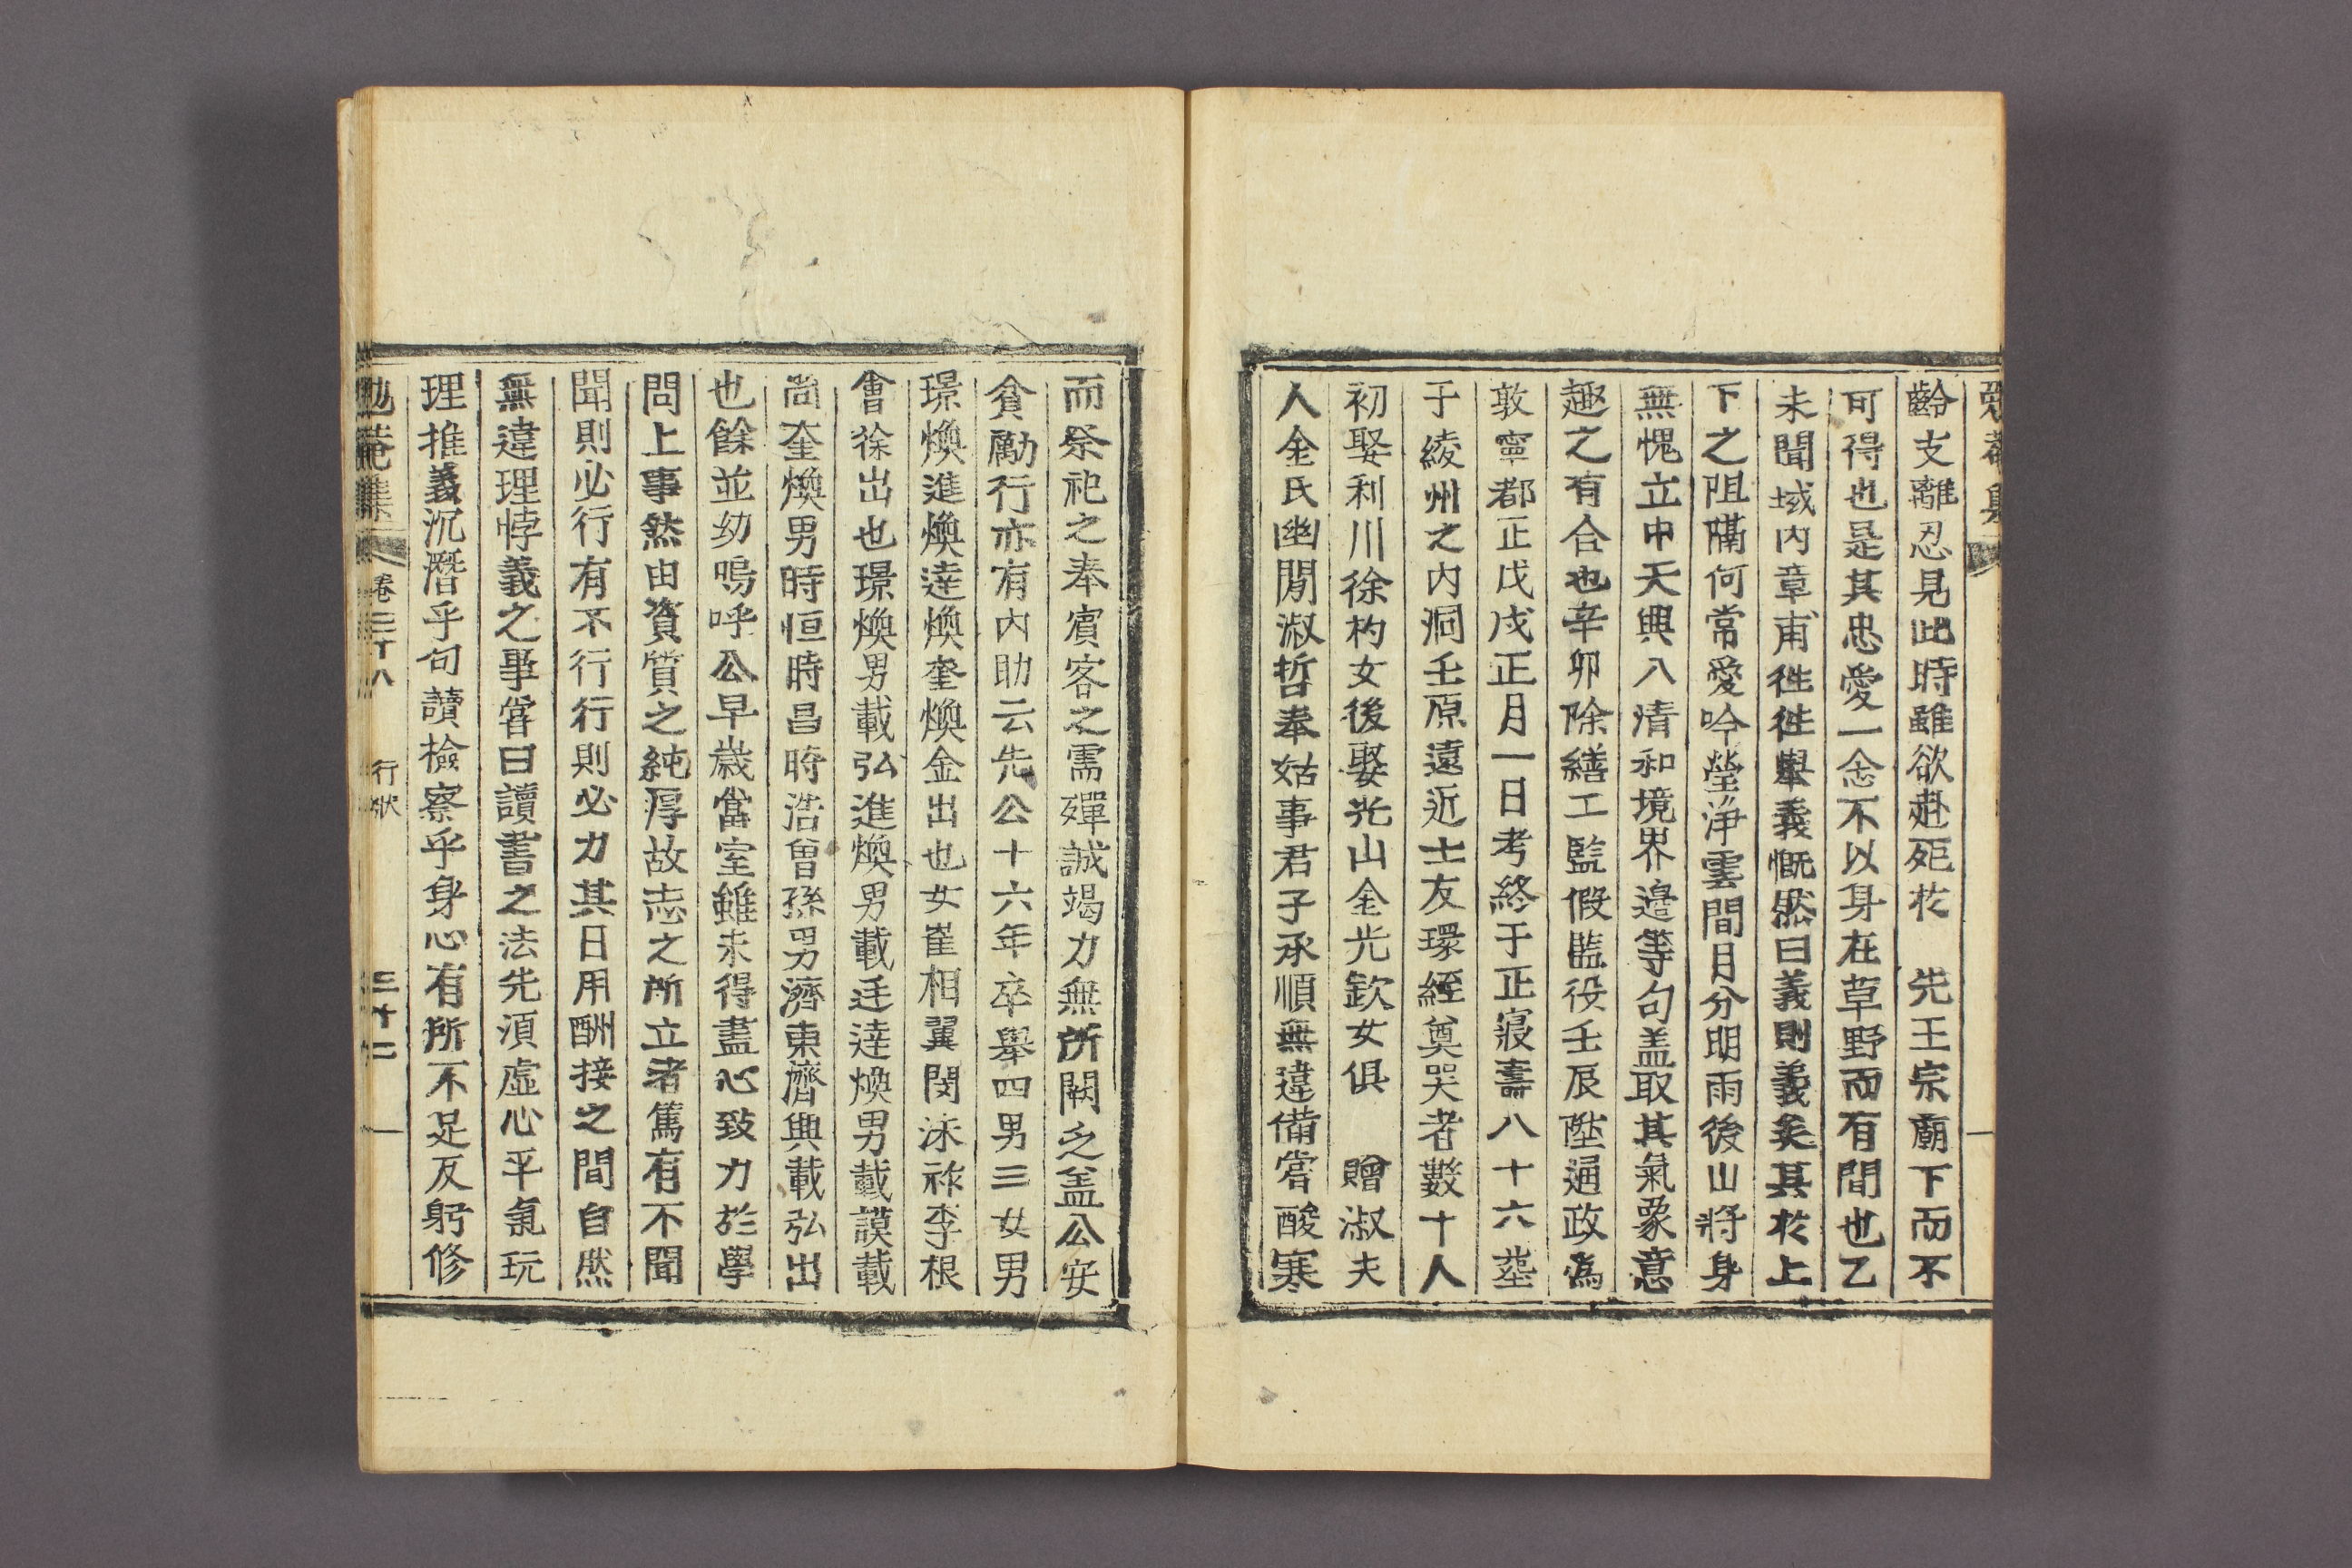 齡支離忍見此時雖欲赴死於　先王宗廟下而不
可得也是其忠愛一念不以身在草野而有間也乙
未聞域内章甫徃徃擧義慨然曰義則義矣其於上
下之阻隔何常愛吟瑩淨雲間月分明雨後山將身
無愧立中天興入清和境界邉等句盖取其氣象意
趣之有合也辛卯除繕工監假監役壬辰陞通政為
敦寧都正戊戌正月一日考終于正寢壽八十六葬
于綾州之内洞壬原遠近士友環絰奠哭者數十人
初娶利川徐杓女後娶光山金光欽女俱　贈淑夫
人金氏幽閒淑哲奉姑事君子承順無違備甞酸寒
而祭祀之奉賓客之需殫誠竭力無所闕乏盖公安
貧勵行亦有内助云先公十六年卒舉四男三女男
璟煥進煥達煥奎煥金出也女崔相翼閔泳祚李根
會徐出也璟煥男載弘進煥男載廷達煥男載謨載
尚奎煥男時恒時昌時浩曾孫男濟東濟興載弘出
也餘並幼嗚呼公早歲當室雖未得盡心致力於學
問上事然由資質之純厚故志之所立者篤有不聞
聞則必行有不行行則必力其日用酬接之間自然
無違理悖義之事甞曰讀書之法先須虛心平氣玩
理推義沉潛乎句讀檢察乎身心有所不足反躬修
勉菴集　卷三十八　行狀　三十二